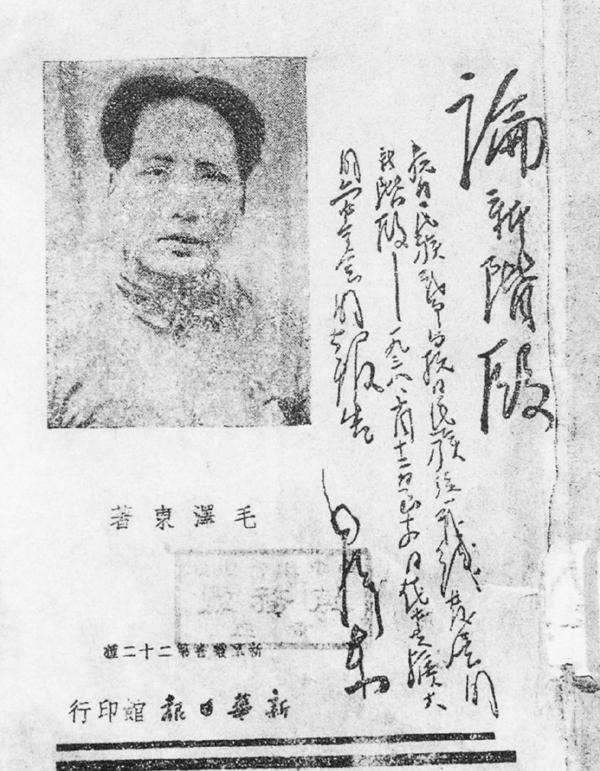 論新階段
抗日民族戰爭與抗日民族統一戰線發展的
新階段——一九三八年十月十二日至十四日在中共擴大
的六中全會的報告
毛澤東
毛澤東著
新群叢書第二十二種
新華日報館印行